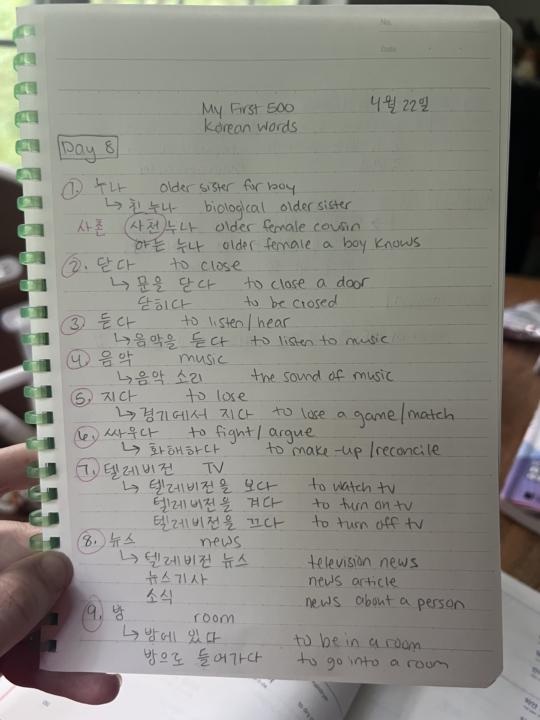 No.
Date
My First 500 4월 22일
Korean Words
Day 8
1. 누나 older sister for boy
↳ 친누나 biological older sister
사촌 사천누나 older female cousin
아는 누나 older female a boy knows
2. 닫다 to close
↳ 문을 닫다 to close a door
닫히다 to be closed
3. 듣다 to listen/hear
↳ 음악을 듣다 to listen to music
4. 음악 music
↳ 음악 소리 the sound of music
5. 지다 to lose
↳ 경기에서 지다 to lose a game/match
6. 싸우다 to fight/argue
↳ 화해하다 to make-up/reconcile
7. 텔레비전 TV
↳ 텔레비전을 보다 to watch tv
텔레비전을 켜다 to turn on tv
텔레비전을 끄다 to turn off tv
8. 뉴스 news
↳ 텔레비전 뉴스 television news
뉴스기사 news article
소식 news about a person
9. 방 room
↳ 방에 있다 to be in a room
방으로 들어가다 to go into a room